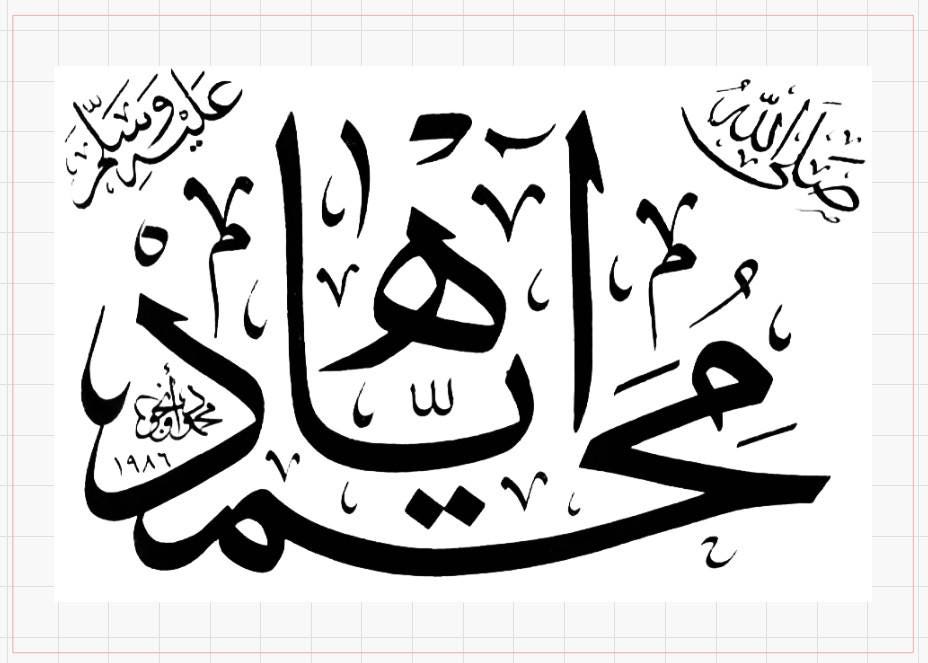 صلى الله
عليه وسلم
محمد
محمود أونجو
١٩٨٦